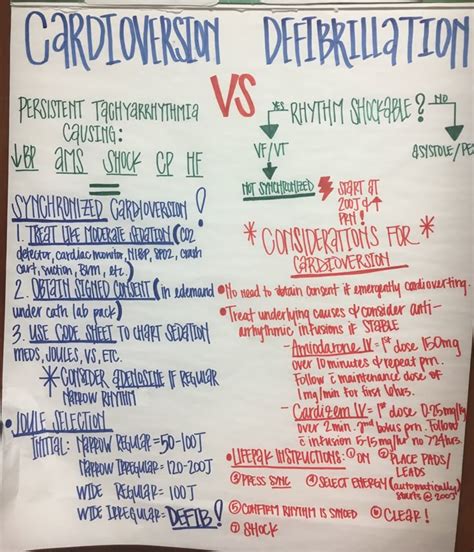 CARDIOVERSION VS DEFIBRILLATION
PERSISTENT TACHYARRHYTHMIA
CAUSING:
↓BP AMS SHOCK CP HF
SYNCHRONIZED CARDIOVERSION!
1. TREAT LIKE MODERATE SEDATION (CO2
detector, cardiac monitor, NIBP, SPO2, crash
cart, suction, BVM, etc.)
2. OBTAIN SIGNED CONSENT (in edemand
under cath lab pack)
3. USE CODE SHEET TO CHART SEDATION
MEDS, JOULES, VS, ETC.
*CONSIDER ADENOSINE IF REGULAR
NARROW RHYTHM
• JOULE SELECTION
INITIAL: NARROW REGULAR = 50-100J
NARROW IRREGULAR = 120-200J
WIDE REGULAR = 100J
WIDE IRREGULAR = DEFIB!
YES RHYTHM SHOCKABLE? NO
VF/VT
ASYSTOLE/PE
NOT SYNCHRONIZED START AT
200J & ↑
PRN!
*CONSIDERATIONS FOR*
CARDIOVERSION
• No need to obtain consent if emergently cardioverting.
• Treat underlying causes & consider anti-
arrhythmic infusions if STABLE
- Amiodarone IV = 1st dose 150mg
over 10 minutes & repeat prn.
Follow c maintenance dose of
1mg/min for first 6hrs.
- Cardizem IV = 1st dose 0.25mg/kg
over 2min. 2nd bolus prn. Follow
c infusion 5-15mg/hr no >24hrs.
• LIFEPAK INSTRUCTIONS: ① ON ② PLACE PADS/
LEADS
③ PRESS SYNC ④ SELECT ENERGY (automatically
starts @ 200J)
⑤ CONFIRM RHYTHM IS SYNCED ⑥ CLEAR!
⑦ SHOCK